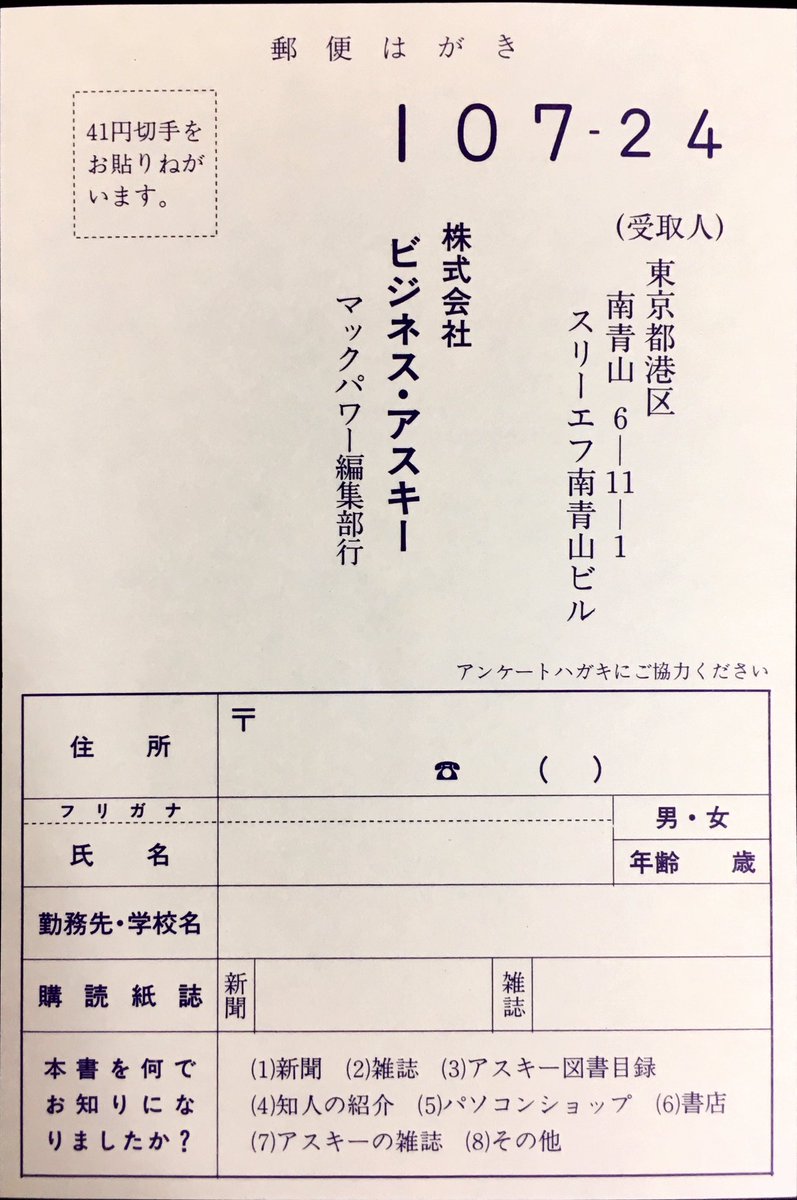 郵便はがき
41円切手を
お貼りねが
います。
107-24
(受取人)
東京都港区
南青山 6―11―1
スリーエフ南青山ビル
株式会社
ビジネス・アスキー
マックパワー編集部行
アンケートハガキにご協力ください
住所
〒
☎ ( )
フリガナ
氏名
男・女
年齢 歳
勤務先・学校名
購読紙誌
新聞
雑誌
本書を何で
お知りにな
りましたか?
(1)新聞 (2)雑誌 (3)アスキー図書目録
(4)知人の紹介 (5)パソコンショップ (6)書店
(7)アスキーの雑誌 (8)その他